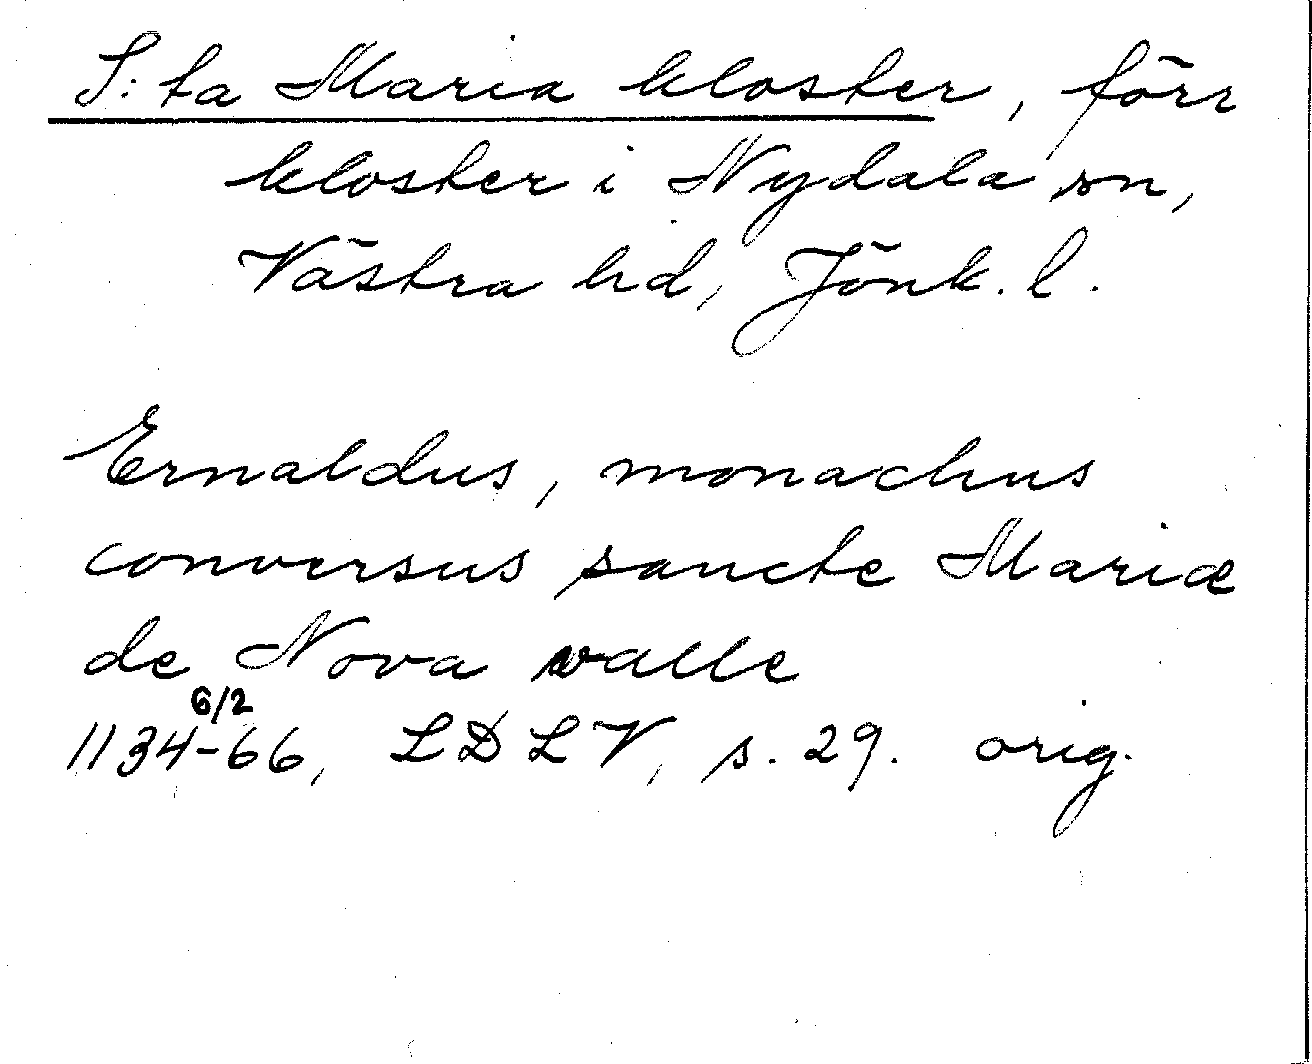 S:ta Maria kloster, förr
kloster i Nydala sn,
Västra hd, Jönk. l.
Ernaldus, monachus
conversus sancte Mariæ
de Nova valle
6/2
1134-66, LDLV, s. 29. orig.